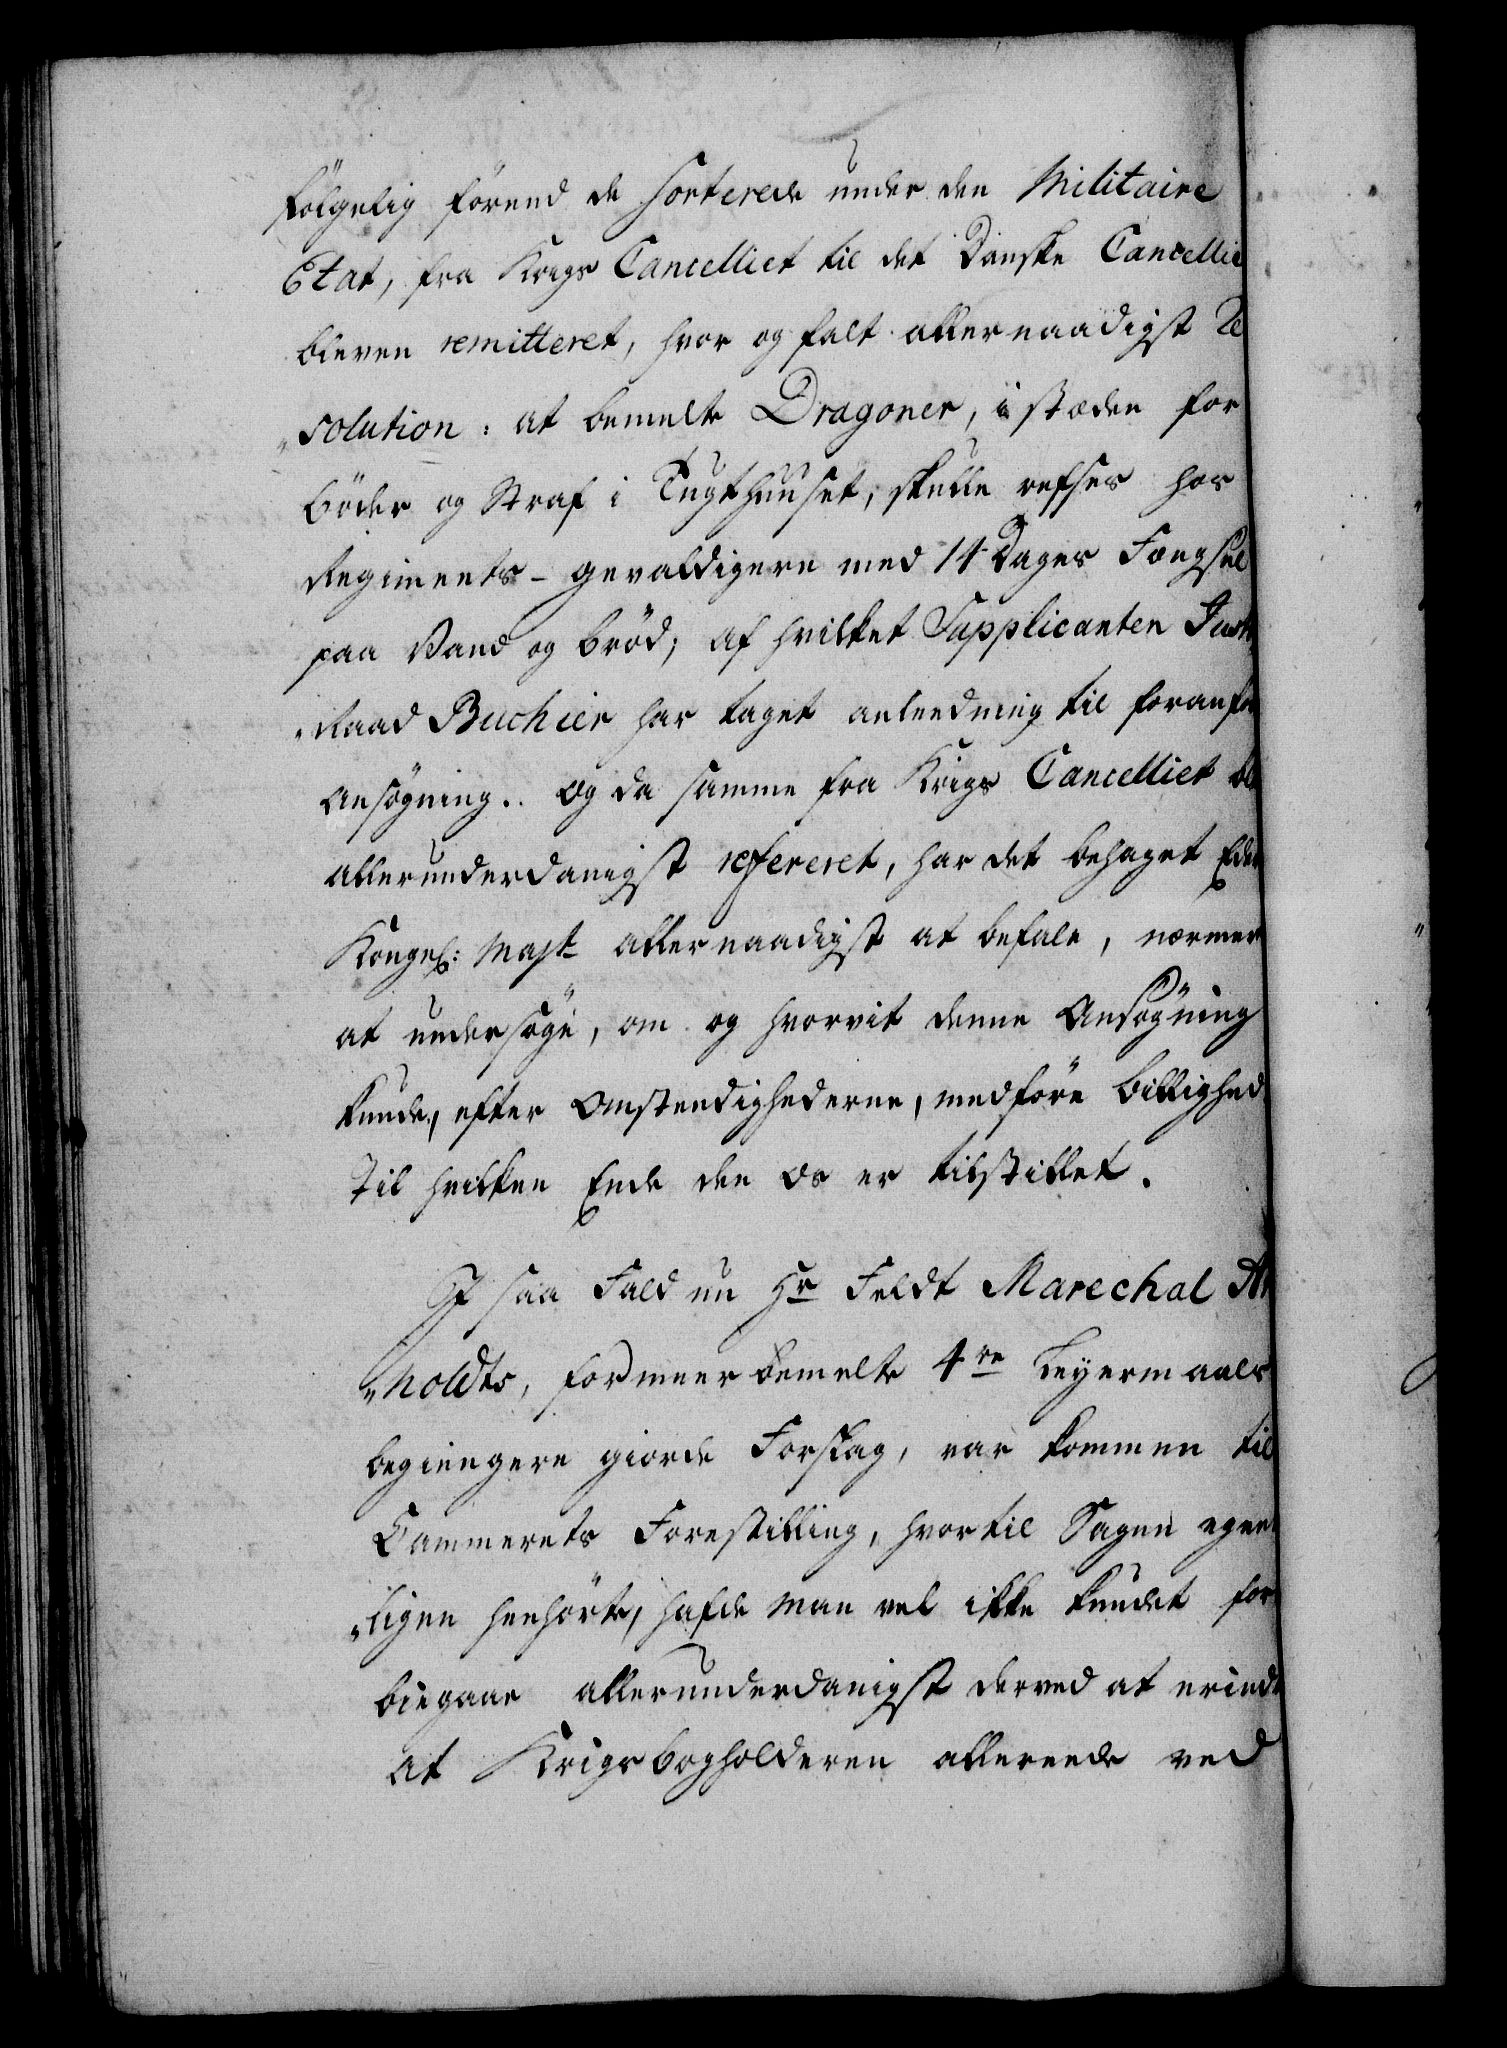 følgelig förend de Sorterede under den Militaire
Etat, fra Krigs Cancelliet til det Danske Cancellie
bleven remitteret, hvor og falt allernaadigst Re
„solution: at bemelte Dragoner, i stæden for
Bøder og Straf i Tugthuuset, skulle refses hos
Regiments-gevaldigeren med 14 Dages Fængsel
paa Vand og Brød; af hvilket Supplicanten Just
„Raad Buchier har taget anledning til foranfør
Ansögning.. Og da samme fra Krigs Cancelliet bl
allerunderdanigst refereret, har det behaget Eder
Kongel: Mayt allernaadigst at befale, nærmer
at undersöge, om og hvorvit denne Ansøgning
kunde, efter Omstendighederne, medføre billighed
Til hvilken Ende den Os er tilstillet.
I saa Fald nu Hr Feldt Marechal Ar
„noldts, for meer bemelte 4re Leyermaals
begiengere giorde Forslag, var kommen til
Cammerets Forestilling, hvortil Sagen egent
„ligen henhörte, hafde man vel ikke kundet for
biegaae allerunderdanigst derved at erindr
at Krigsbogholderen allereede ved